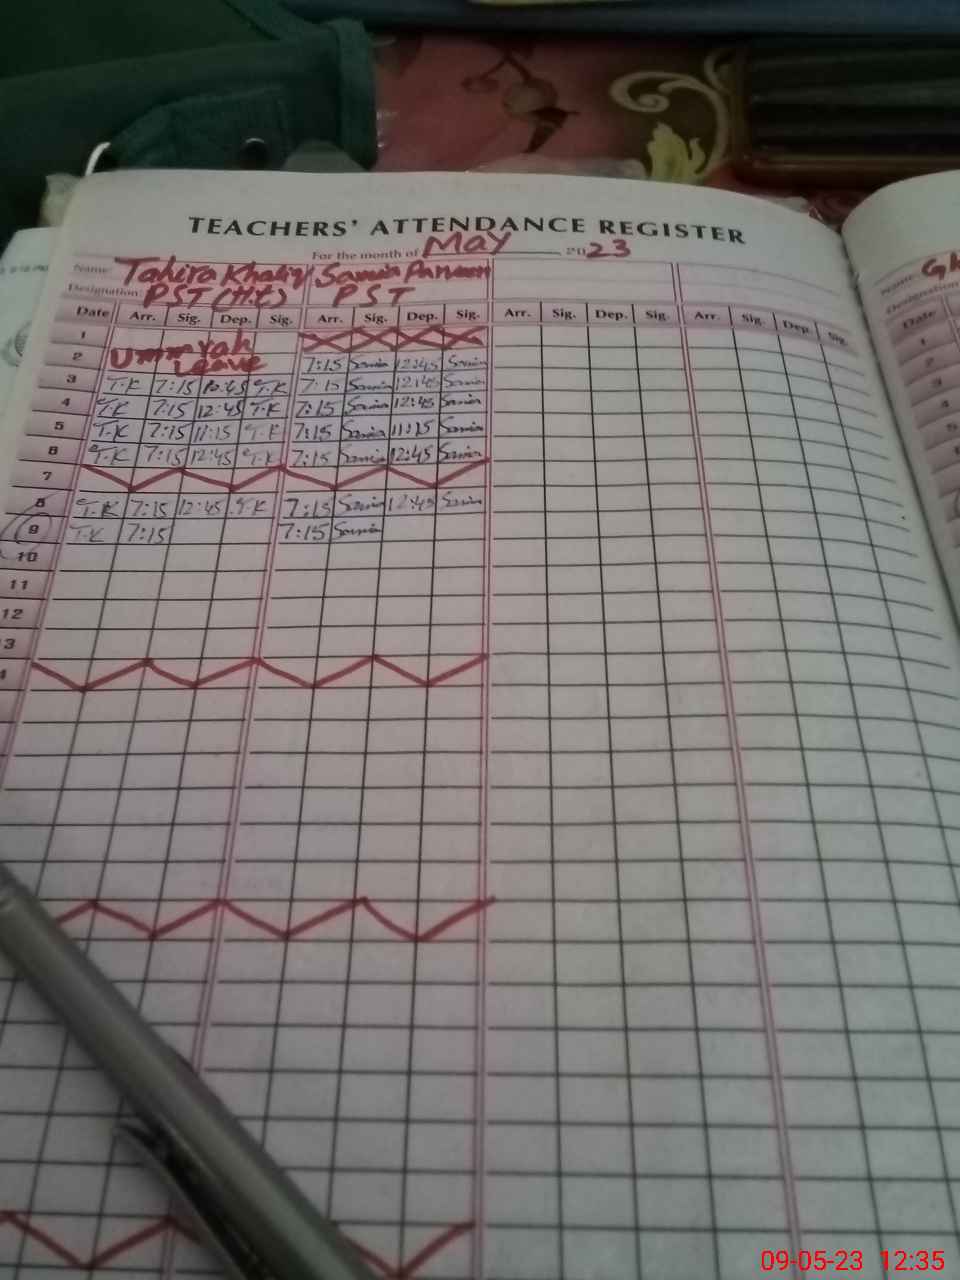 TEACHERS' ATTENDANCE REGISTER
For the month of May 2023
Name: Tahira Khaliq Samia Parveen
Designation: PST (H.t) PST
Date Arr. Sig. Dep. Sig. Arr. Sig. Dep. Sig. Arr. Sig. Dep. Sig. Arr. Sig. Dep. Sig.
1
2 Ummrah Leave 7:15 Samia 12:45 Samia
3 T.K 7:15 T.K 7:15 Samia 12:45 Samia
4 T.K 7:15 12:45 T.K 7:15 Samia 12:45 Samia
5 T.K 7:15 11:15 T.K 7:15 Samia 11:15 Samia
6 T.K 7:15 12:45 T.K 7:15 Samia 12:45 Samia
7
8 T.K 7:15 12:45 T.K 7:15 Samia 12:45 Samia
9 T.K 7:15 7:15 Samia
10
11
12
3
Name:
Designation
Date
1
2
3
4
5
09-05-23 12:35